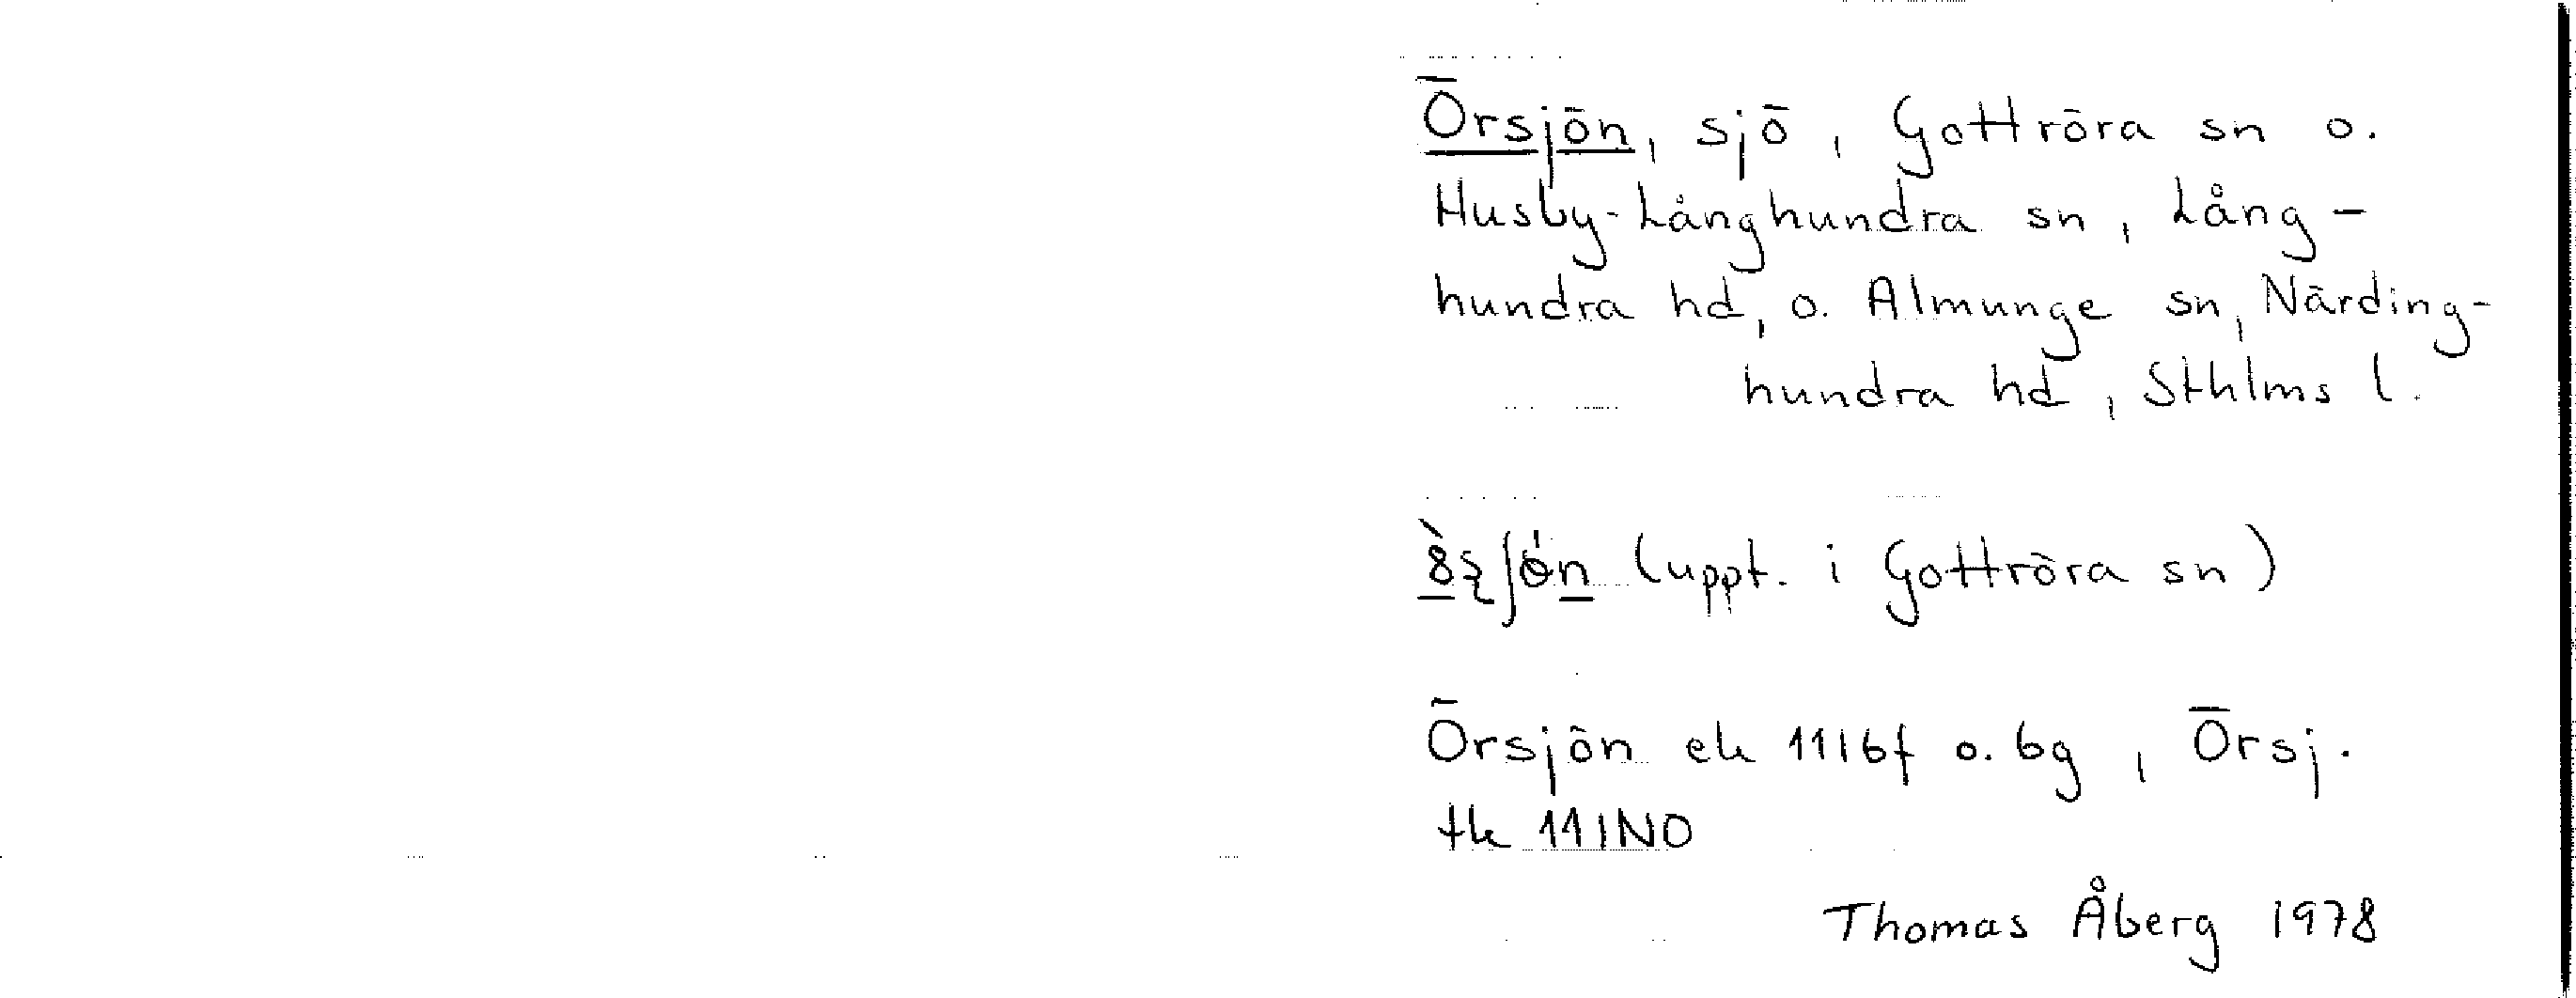 Örsjön, sjö, Gottröra sn o.
Husby-Långhundra sn, Lång-
hundra hd, o. Almunge sn, Närding-
hundra hd, Sthlms l.
(uppt. i Gottröra sn)
Örsjön ek 11I6f o. 6g, Örsj.
tk 11INO
Thomas Åberg 1978